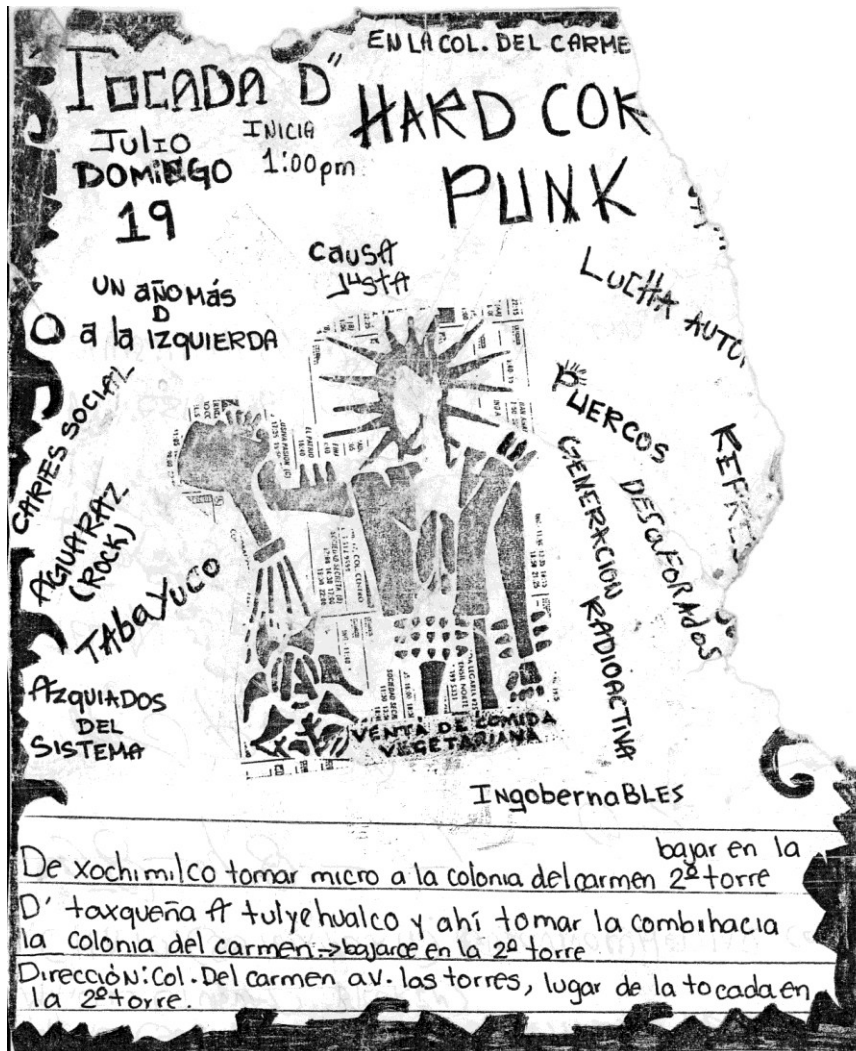 EN LA COL. DEL CARME
TOCADA D"
HARD COR
PUNK
JULIO
DOMINGO
19
INICIA
1:00pm
CAUSA
JUSTA
UN AÑO MÁS
D
O a la IZQUIERDA
LUCHA AUTO
CARIES SOCIAL
AGUARAZ
(ROCK)
TABAYUCO
AZQUIADOS
DEL
SISTEMA
PUERCOS
DESAFORADOS
GENERACION
RADIOACTIVA
REPRES
VENTA DE COMIDA
VEGETARIANA
INgobernaBLES
bajar en la
De xochimilco tomar micro a la colonia del carmen 2ª torre
D' taxqueña A tulyehualco y ahí tomar la combi hacia
la colonia del carmen → bajarce en la 2ª torre
Dirección: Col. Del carmen av. las torres, lugar de la tocada en
la 2ª torre.